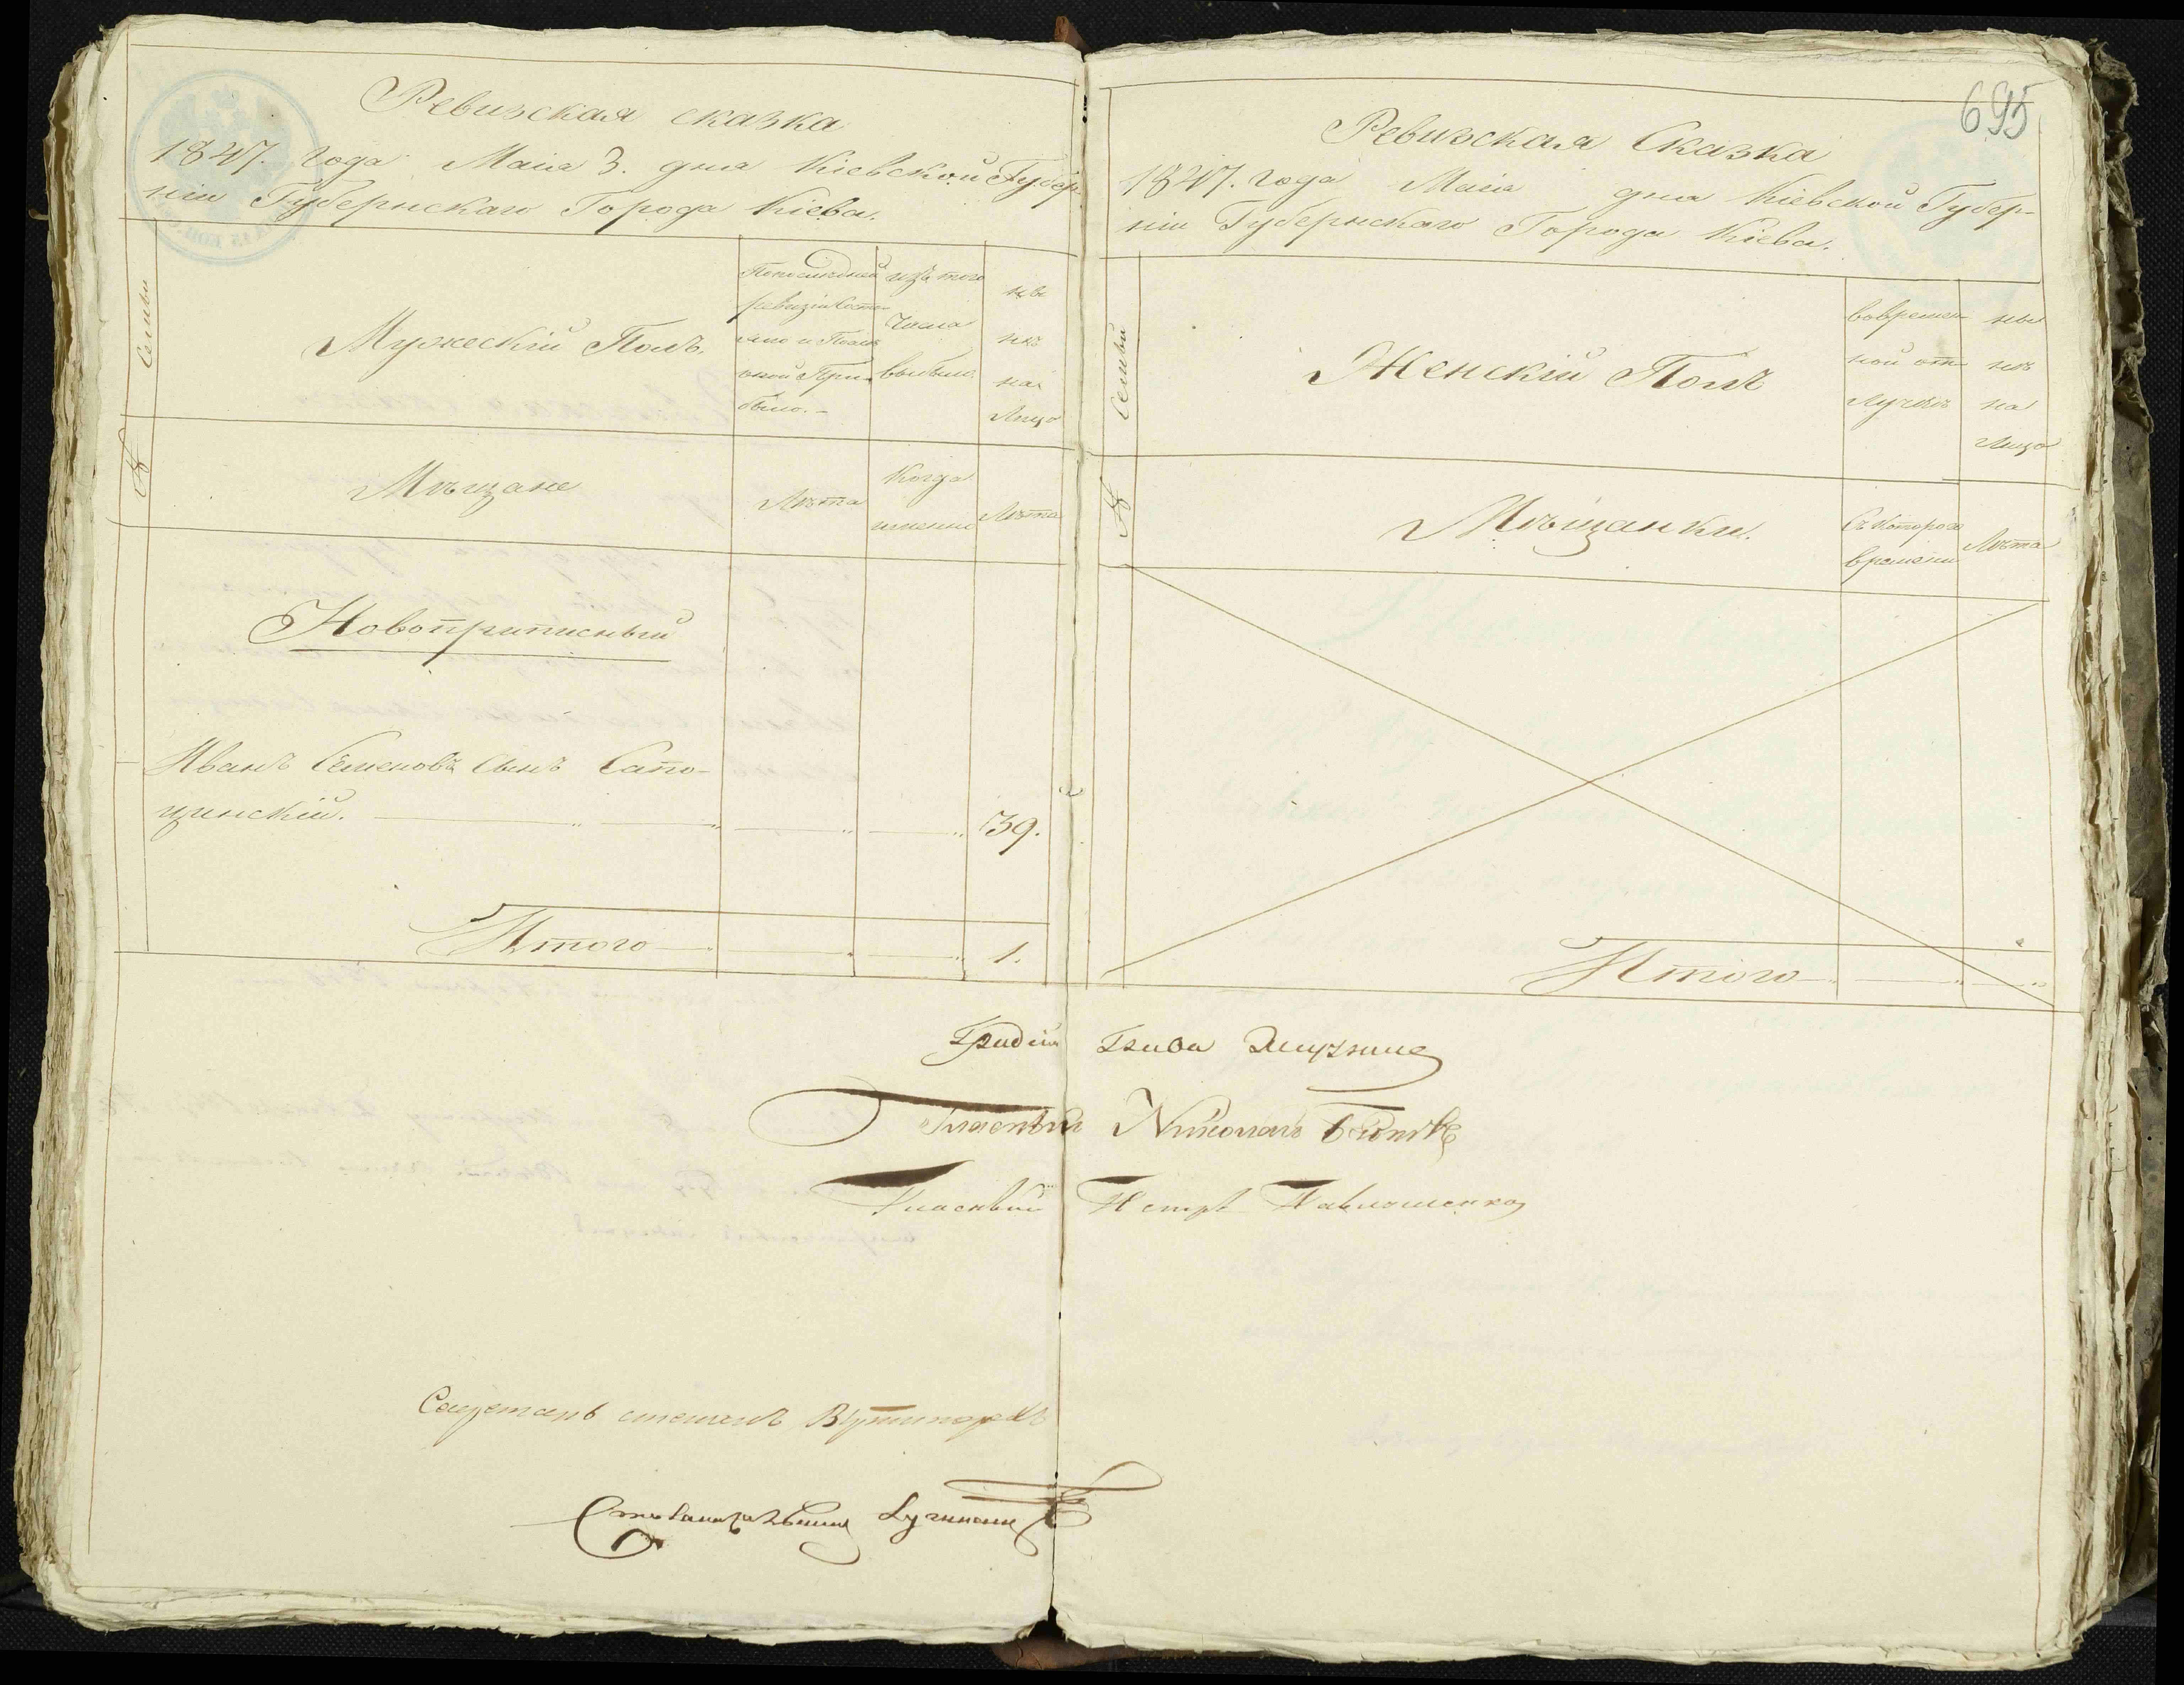 Ревизская сказка
1847. года Маиа 3. дня Кіевской Губер-
ніи Губернскаго Города Кіева.
Семьи
Мужескій Полъ.
Попослѣдней
ревизіи Состо-
яло и После
оной При-
было.-
изъ того
Числа
выбыло
ны
нѣ
на
Лицо
№
Мѣщане
Лѣта
Когда
именно
Лѣта
Новоприписный
Иванъ Семеновъ Сынъ Сапо-
щинскій. 39.
Итого 1.
695
Ревизская Сказка
1847. года Маиа дня Кіевской Губер-
ніи Губернскаго Города Кіева.
Семьи
Женскій Полъ
вовремен-
ной от-
лучкѣ
ны
нѣ
на
Лицо
№
Мѣщанки.
Съ Котораго
времени
Лѣта
Итого
Глава
Гласный Николай
Гласный Петръ Павлошенко
Секретарь